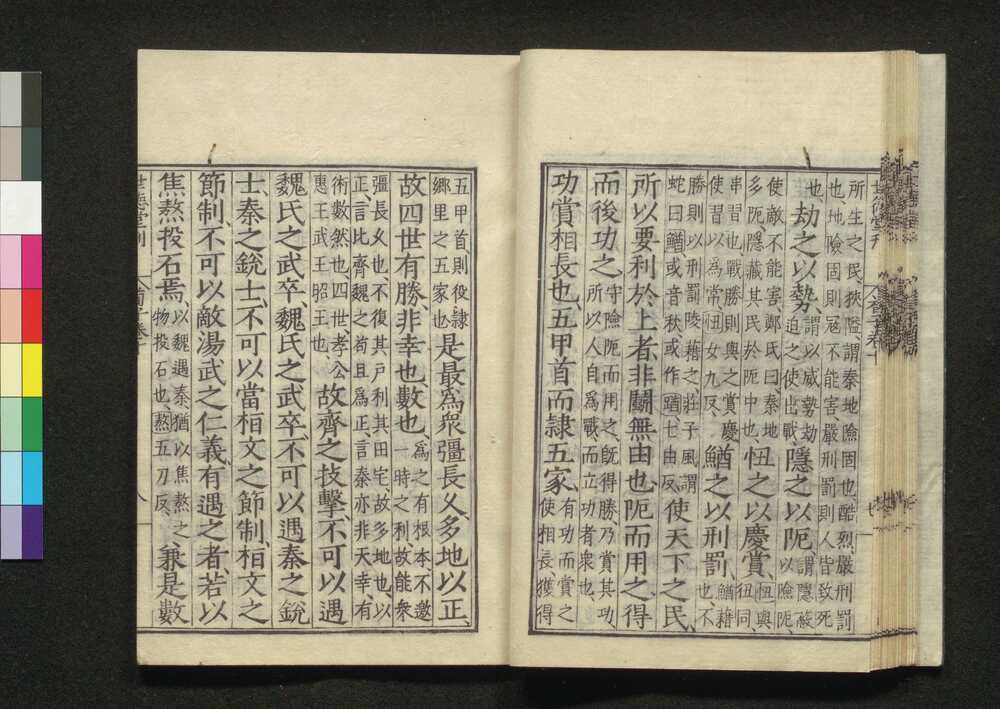 所生之民、狹隘謂秦地險固也、酷烈嚴刑罰
也、地險固則寇不能害嚴刑罰則人皆致死
也、劫之以勢、謂以威勢劫迫之使出戰、隱之以阨、謂隱蔽以險阨、
使敵不能害、鄭氏曰秦地多阨、隱藏其民於阨中也、忸之以慶賞、忸與狃同、
串習也、戰勝則與之賞慶使習以為常、忸女九反、鰌之以刑罰、鰌藉也、不
勝則以刑罰陵藉之、莊子風謂蛇曰鰌、或音秋、或作七由反、使天下之民、
所以要利於上者、非鬭無由也、阨而用之、得
而後功之、守險阨而用之、既得勝乃賞其功、所以人自為戰、而立功者衆也、
功賞相長也、五甲首而隸五家、有功而賞之使相長、獲得
五甲首、則役隸鄉里之五家也、是最為衆彊長久、多地以正、
故四世有勝、非幸也、數也、為之有根本、不邀一時之利故能衆
彊長久也、不復其戶利其田宅、故多地也、以正、言比齊魏之苟且為正、言秦亦非天幸、有
術數然也、四世、孝公惠王武王昭王也、故齊之技擊、不可以遇
魏氏之武卒、魏氏之武卒、不可以遇秦之銳
士、秦之銳士、不可以當桓文之節制、桓文之
節制、不可以敵湯武之仁義、有遇之者、若以
焦熬投石焉、以魏遇秦、猶以焦熬之物投石也、熬五刀反、兼是數
八